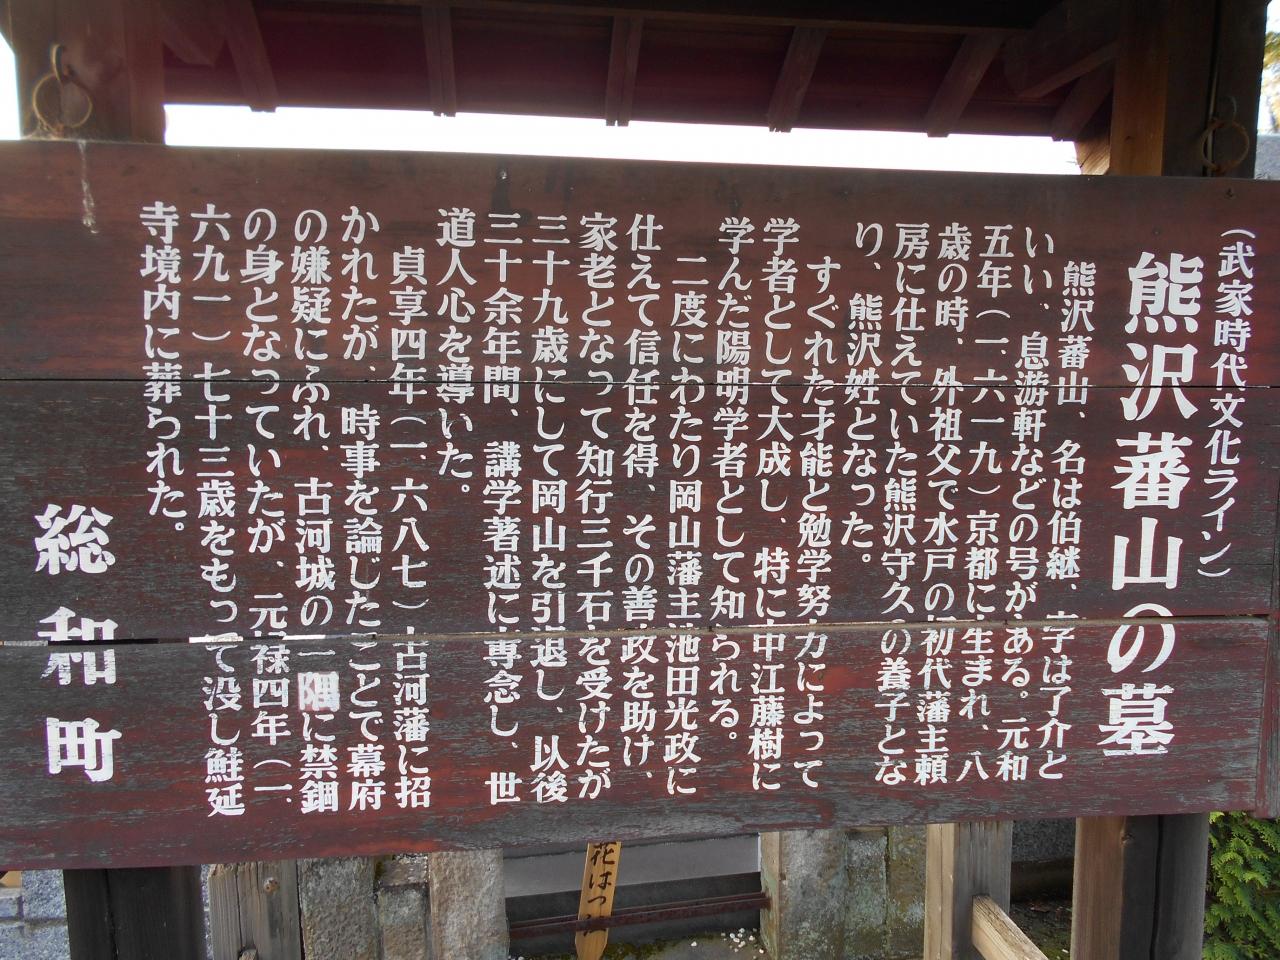 （武家時代文化ライン）
熊沢蕃山の墓
熊沢蕃山、名は伯継、字は了介と
いい、息游軒などの号がある。元和
五年（一、六一九）京都に生まれ、八
歳の時、外祖父で水戸の初代藩主頼
房に仕えていた熊沢守久の養子とな
り、熊沢姓となった。
すぐれた才能と勉学努力によって
学者として大成し、特に中江藤樹に
学んだ陽明学者として知られる。
二度にわたり岡山藩主池田光政に
仕えて信任を得、その善政を助け、
家老となって知行三千石を受けたが
三十九歳にして岡山を引退し、以後
三十余年間、講学著述に専念し、世
道人心を導いた。
貞享四年（一、六八七）古河藩に招
かれたが、時事を論じたことで幕府
の嫌疑にふれ、古河城の一隅に禁錮
の身となっていたが、元禄四年（一、
六九一）七十三歳をもって没し鮭延
寺境内に葬られた。
総和町
花はつ